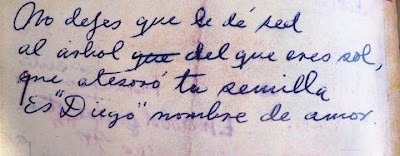 No dejes que le dé sed
al árbol que del que eres sol,
que atesoró tu semilla
Es "Diego" nombre de amor.